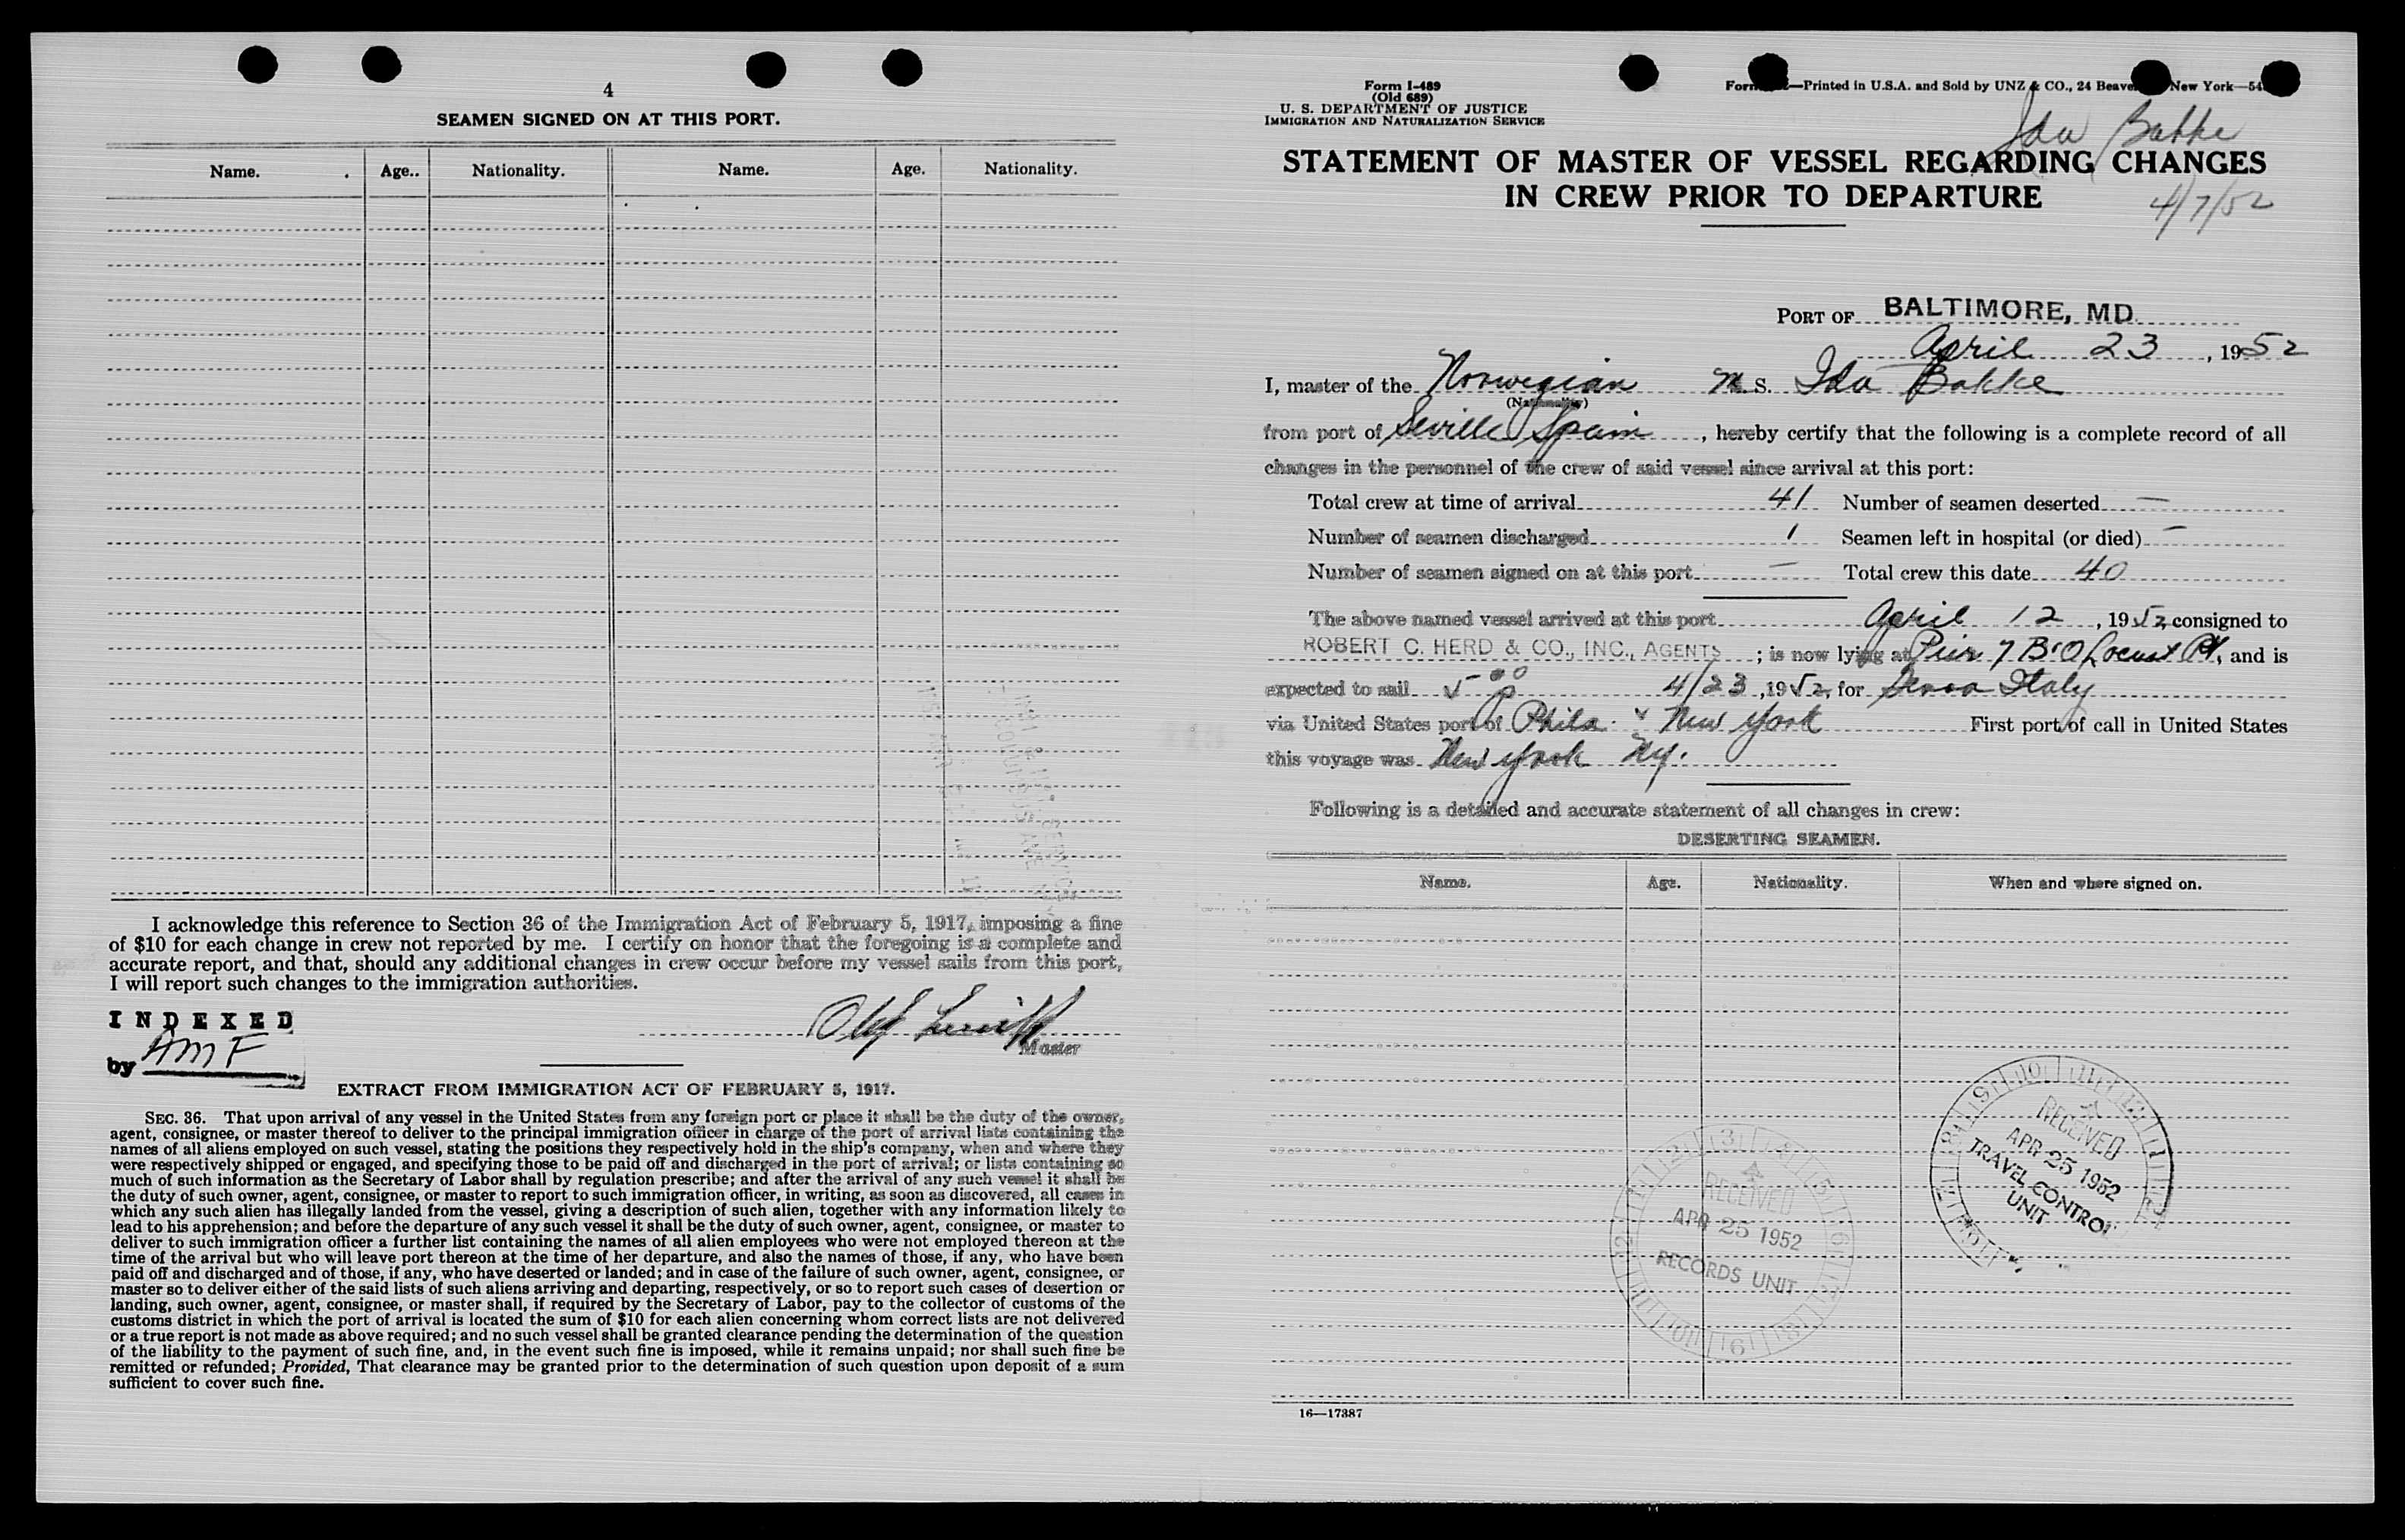 4
SEAMEN SIGNED ON AT THIS PORT.
Name. Age.. Nationality. Name. Age. Nationality.
I acknowledge this reference to Section 36 of the Immigration Act of February 5, 1917, imposing a fine
of $10 for each change in crew not reported by me. I certify on honor that the foregoing is a complete and
accurate report, and that, should any additional changes in crew occur before my vessel sails from this port,
I will report such changes to the immigration authorities.
INDEXED
by AMF
Master
EXTRACT FROM IMMIGRATION ACT OF FEBRUARY 5, 1917.
SEC. 36. That upon arrival of any vessel in the United States from any foreign port or place it shall be the duty of the owner,
agent, consignee, or master thereof to deliver to the principal immigration officer in charge of the port of arrival lists containing the
names of all aliens employed on such vessel, stating the positions they respectively hold in the ship's company, when and where they
were respectively shipped or engaged, and specifying those to be paid off and discharged in the port of arrival; or lists containing so
much of such information as the Secretary of Labor shall by regulation prescribe; and after the arrival of any such vessel it shall be
the duty of such owner, agent, consignee, or master to report to such immigration officer, in writing, as soon as discovered, all cases in
which any such alien has illegally landed from the vessel, giving a description of such alien, together with any information likely to
lead to his apprehension; and before the departure of any such vessel it shall be the duty of such owner, agent, consignee, or master to
deliver to such immigration officer a further list containing the names of all alien employees who were not employed thereon at the
time of the arrival but who will leave port thereon at the time of her departure, and also the names of those, if any, who have been
paid off and discharged and of those, if any, who have deserted or landed; and in case of the failure of such owner, agent, consignee, or
master so to deliver either of the said lists of such aliens arriving and departing, respectively, or so to report such cases of desertion or
landing, such owner, agent, consignee, or master shall, if required by the Secretary of Labor, pay to the collector of customs of the
customs district in which the port of arrival is located the sum of $10 for each alien concerning whom correct lists are not delivered
or a true report is not made as above required; and no such vessel shall be granted clearance pending the determination of the question
of the liability to the payment of such fine, and, in the event such fine is imposed, while it remains unpaid; nor shall such fine be
remitted or refunded; Provided, That clearance may be granted prior to the determination of such question upon deposit of a sum
sufficient to cover such fine.
Form I-489
(Old 689)
U. S. DEPARTMENT OF JUSTICE
IMMIGRATION AND NATURALIZATION SERVICE
—Printed in U.S.A. and Sold by UNZ & CO., 24 Beaver New York—
Ida Bakke
STATEMENT OF MASTER OF VESSEL REGARDING CHANGES
IN CREW PRIOR TO DEPARTURE
4/7/52
PORT OF BALTIMORE, MD.
April 23, 1952
I, master of the Norwegian M. S. Ida Bakke
(Nationality)
from port of Seville Spain, hereby certify that the following is a complete record of all
changes in the personnel of the crew of said vessel since arrival at this port:
Total crew at time of arrival 41 Number of seamen deserted —
Number of seamen discharged 1 Seamen left in hospital (or died) —
Number of seamen signed on at this port — Total crew this date 40
The above named vessel arrived at this port April 12, 1952, consigned to
ROBERT C. HERD & CO., INC., AGENTS; is now lying at Pier 7 B&O Locust Pt, and is
expected to sail 5 00 p 4/23, 1952, for Genoa Italy
via United States port of Phila. & New York First port of call in United States
this voyage was New York NY.
Following is a detailed and accurate statement of all changes in crew:
DESERTING SEAMEN.
Name. Age. Nationality. When and where signed on.
RECEIVED
APR 25 1952
TRAVEL CONTROL
UNIT
RECEIVED
APR 25 1952
RECORDS UNIT
16—17387